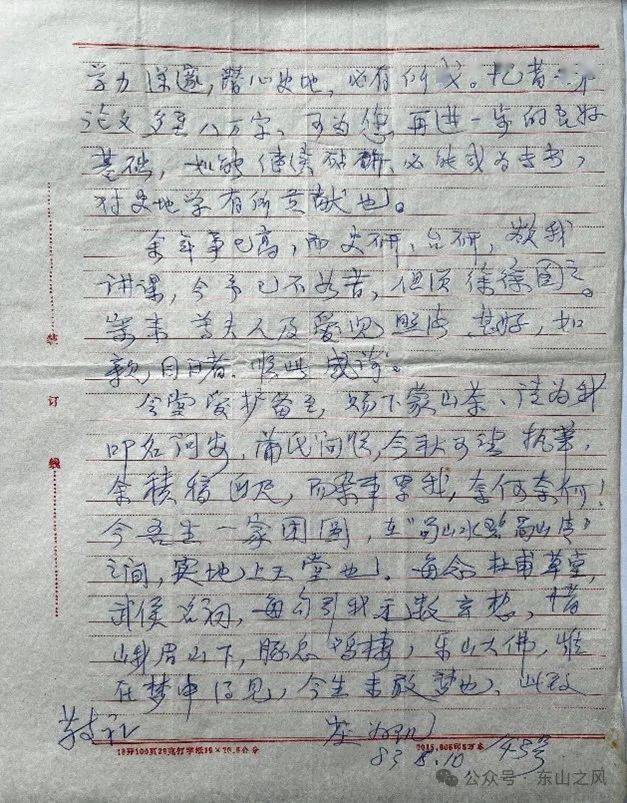 学力深邃，潜心史地，必有所成。忆昔
论文多至八万字，可为您再进一步的良好
基础，如能继续钻研，必能成为专书，
对史地学有所贡献也。
余年事已高，而史研，台研，邀我
讲课，今予已不如昔，但须徐徐图之。
寄来尊夫人及爱儿照片甚好，如
亲自目睹。顺此感谢。
令堂爱护备至，赐下蒙山茶，请为我
叩名问安，蒲氏问题，今秋可望执笔，
余积稿盈尺，而杂事累我，奈何奈何！
今吾生一家团圆，在“蜀山水碧蜀山青”
之间，实地上天堂也。每念杜甫草堂，
武侯名祠，每勾引我无数遐想，惜
峨眉山下，豚总
，乐山大佛，唯
在梦中得见，今生未敢梦也。此致
敬礼
83.8.10
装
订
线
16开100页28克打字纸19×26.5公分
2015.806印5万本
公众号·东山之风